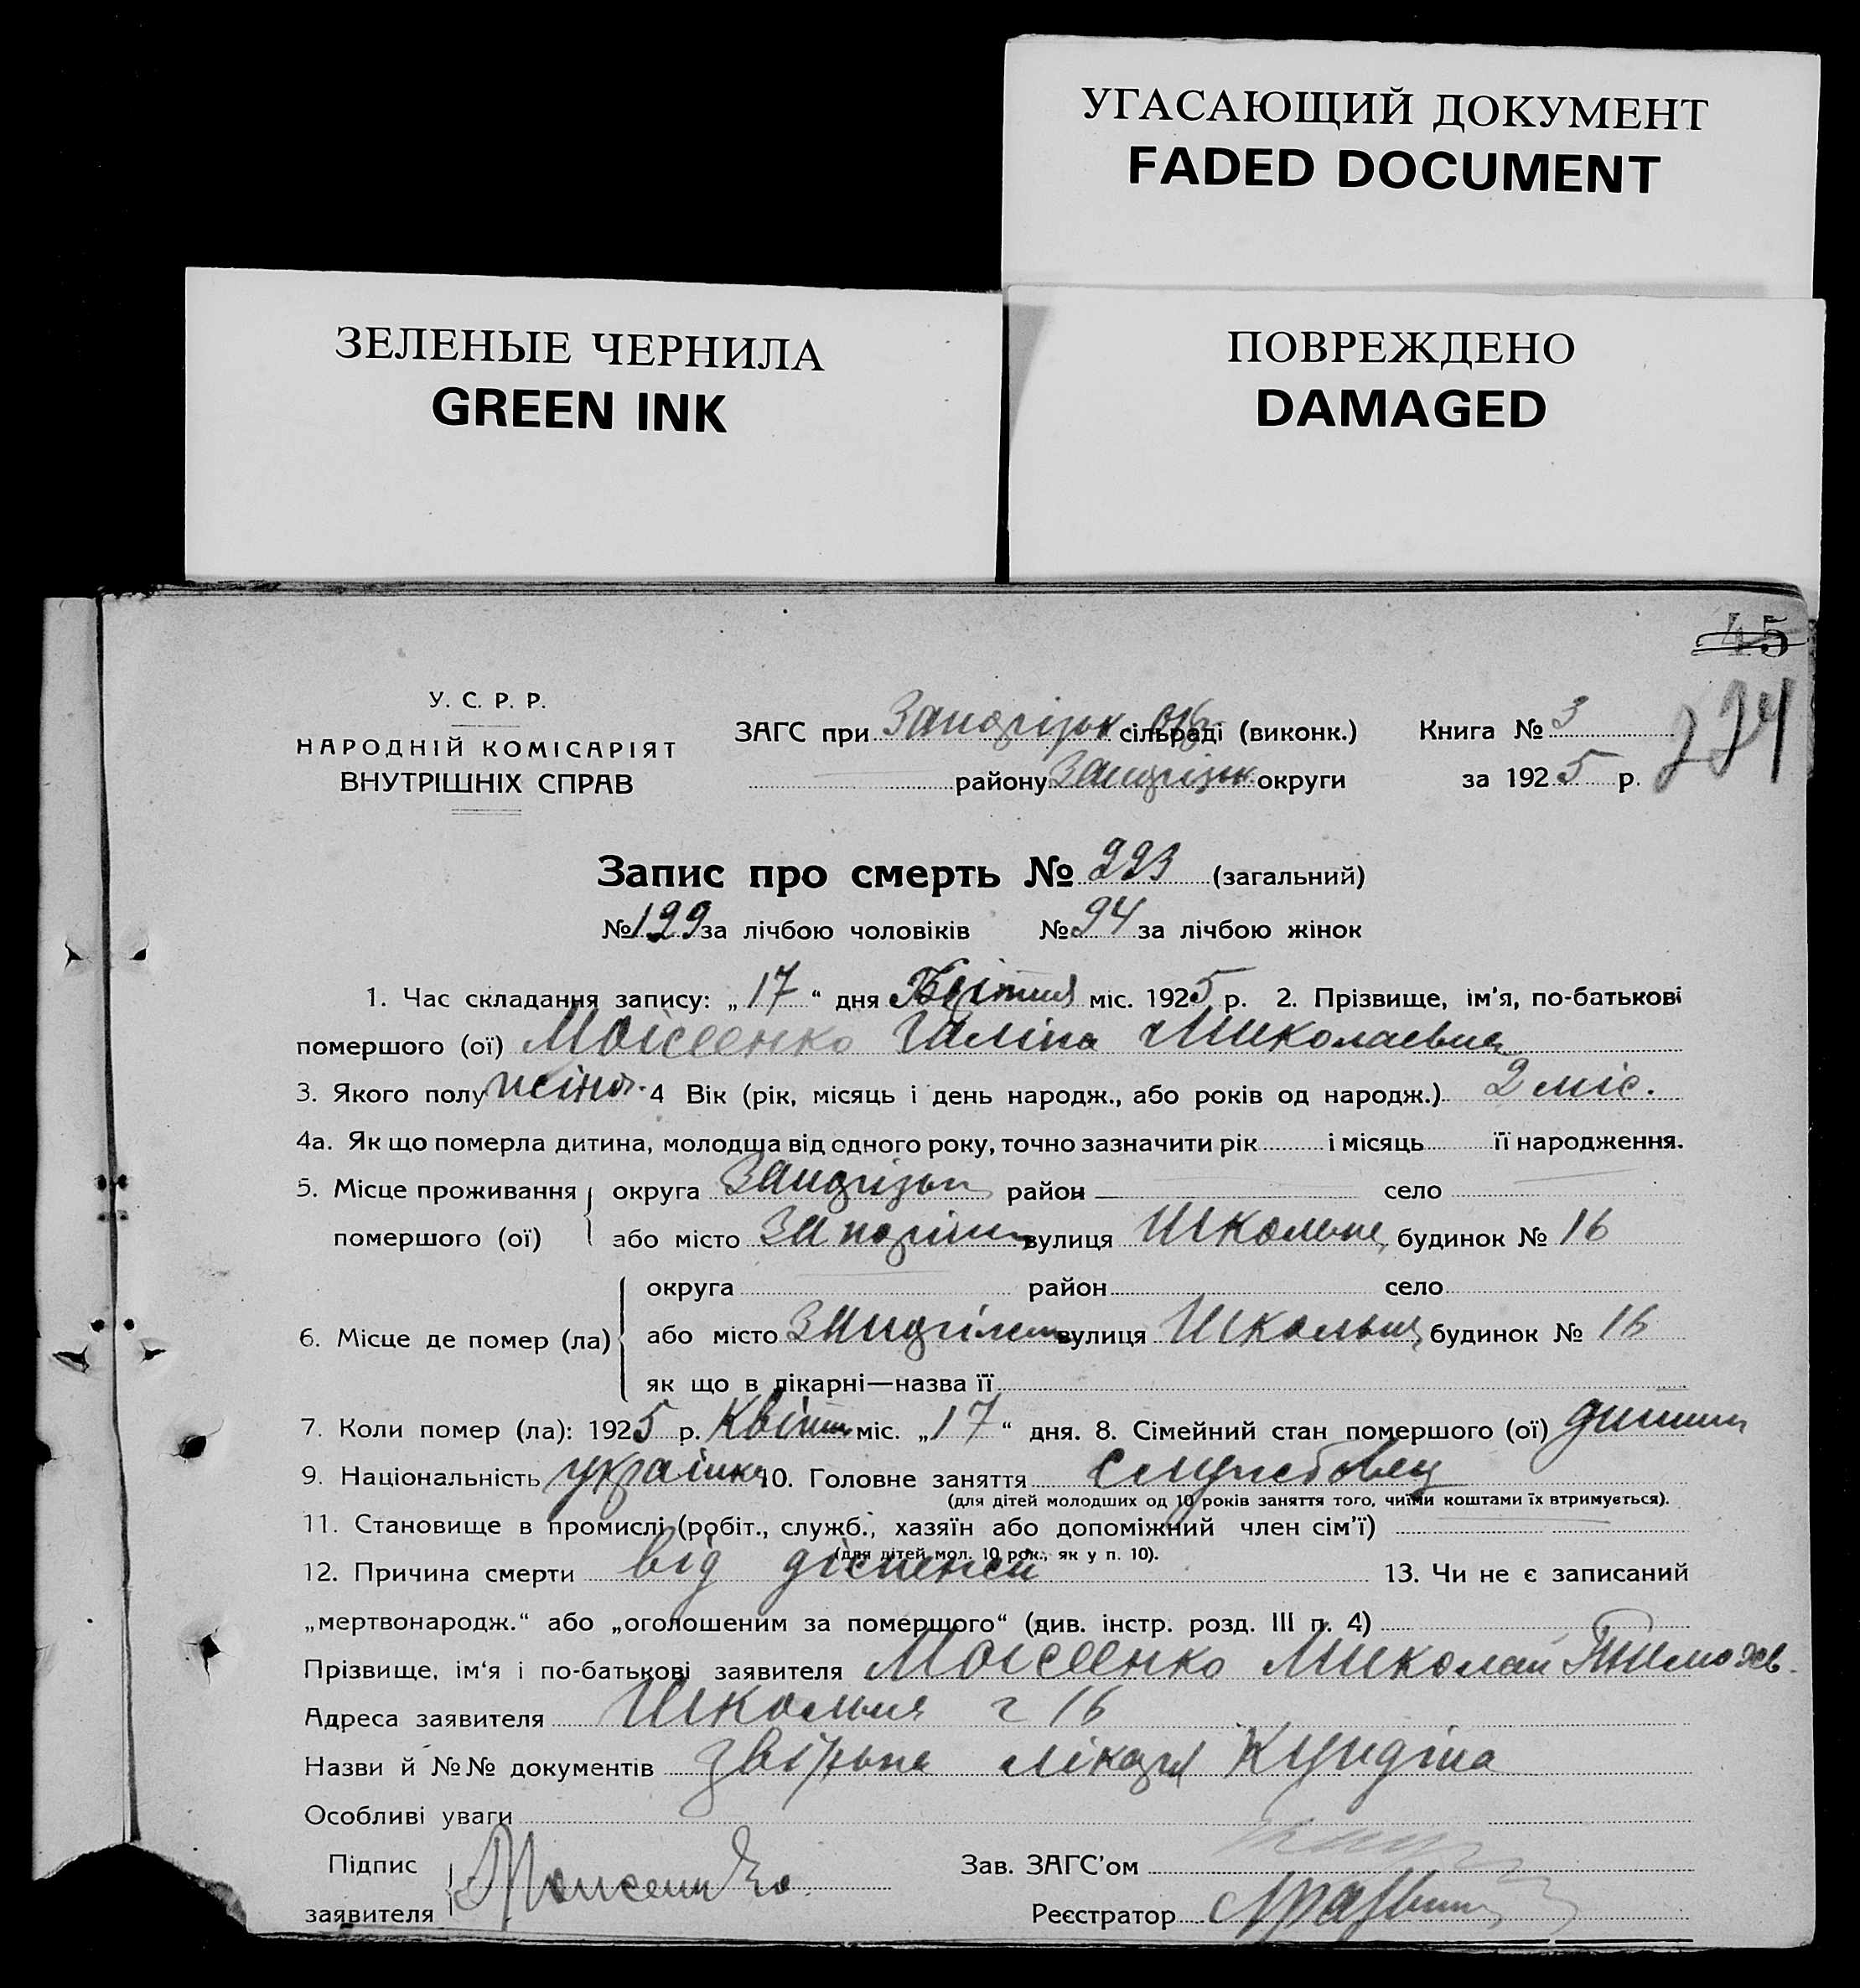 УГАСАЮЩИЙ ДОКУМЕНТ
FADED DOCUMENT
ЗЕЛЕНЫЕ ЧЕРНИЛА
GREEN INK
ПОВРЕЖДЕНО
DAMAGED
45
У. С. Р. Р.
НАРОДНІЙ КОМІСАРІЯТ
ВНУТРІШНІХ СПРАВ
ЗАГС при Запорізьк. окр. сільраді (виконк.) Книга № 3
району Запорізьк. округи за 1925 р.
224
Запис про смерть № 223 (загальний)
№ 129 за лічбою чоловіків № 94 за лічбою жінок
1. Час складання запису: „17“ дня Квітня міс. 1925 р. 2. Прізвище, ім'я, по-батькові
помершого (ої) Моісеенко Галіна Миколаевна
3. Якого полу жіноч. 4 Вік (рік, місяць і день народж., або років од народж.) 2 міс.
4а. Як що померла дитина, молодша від одного року, точно зазначити рік і місяць її народження.
5. Місце проживання округа Запорізьк район село
помершого (ої) або місто Запоріжж вулиця Школьна будинок № 16
округа район село
6. Місце де помер (ла) або місто Запоріжж вулиця Школьна будинок № 16
як що в лікарні—назва її
7. Коли помер (ла): 1925 р. Квітн міс. „17“ дня. 8. Сімейний стан помершого (ої) дитина
9. Національність украінка 10. Головне заняття службовец
(для дітей молодших од 10 років заняття того, чиїми коштами їх втримується).
11. Становище в промислі (робіт., служб., хазяїн або допоміжний член сім'ї)
(для дітей мол. 10 рок., як у п. 10).
12. Причина смерти від діспенсіі 13. Чи не є записаний
„мертвонародж.“ або „оголошеним за помершого“ (див. інстр. розд. III п. 4)
Прізвище, ім'я і по-батькові заявителя Моісеенко Миколай Тимохв.
Адреса заявителя Школьна 16
Назви й №№ документів лікаря
Особливі уваги
Підпис Моисеенко Зав. ЗАГС'ом
заявителя Реєстратор